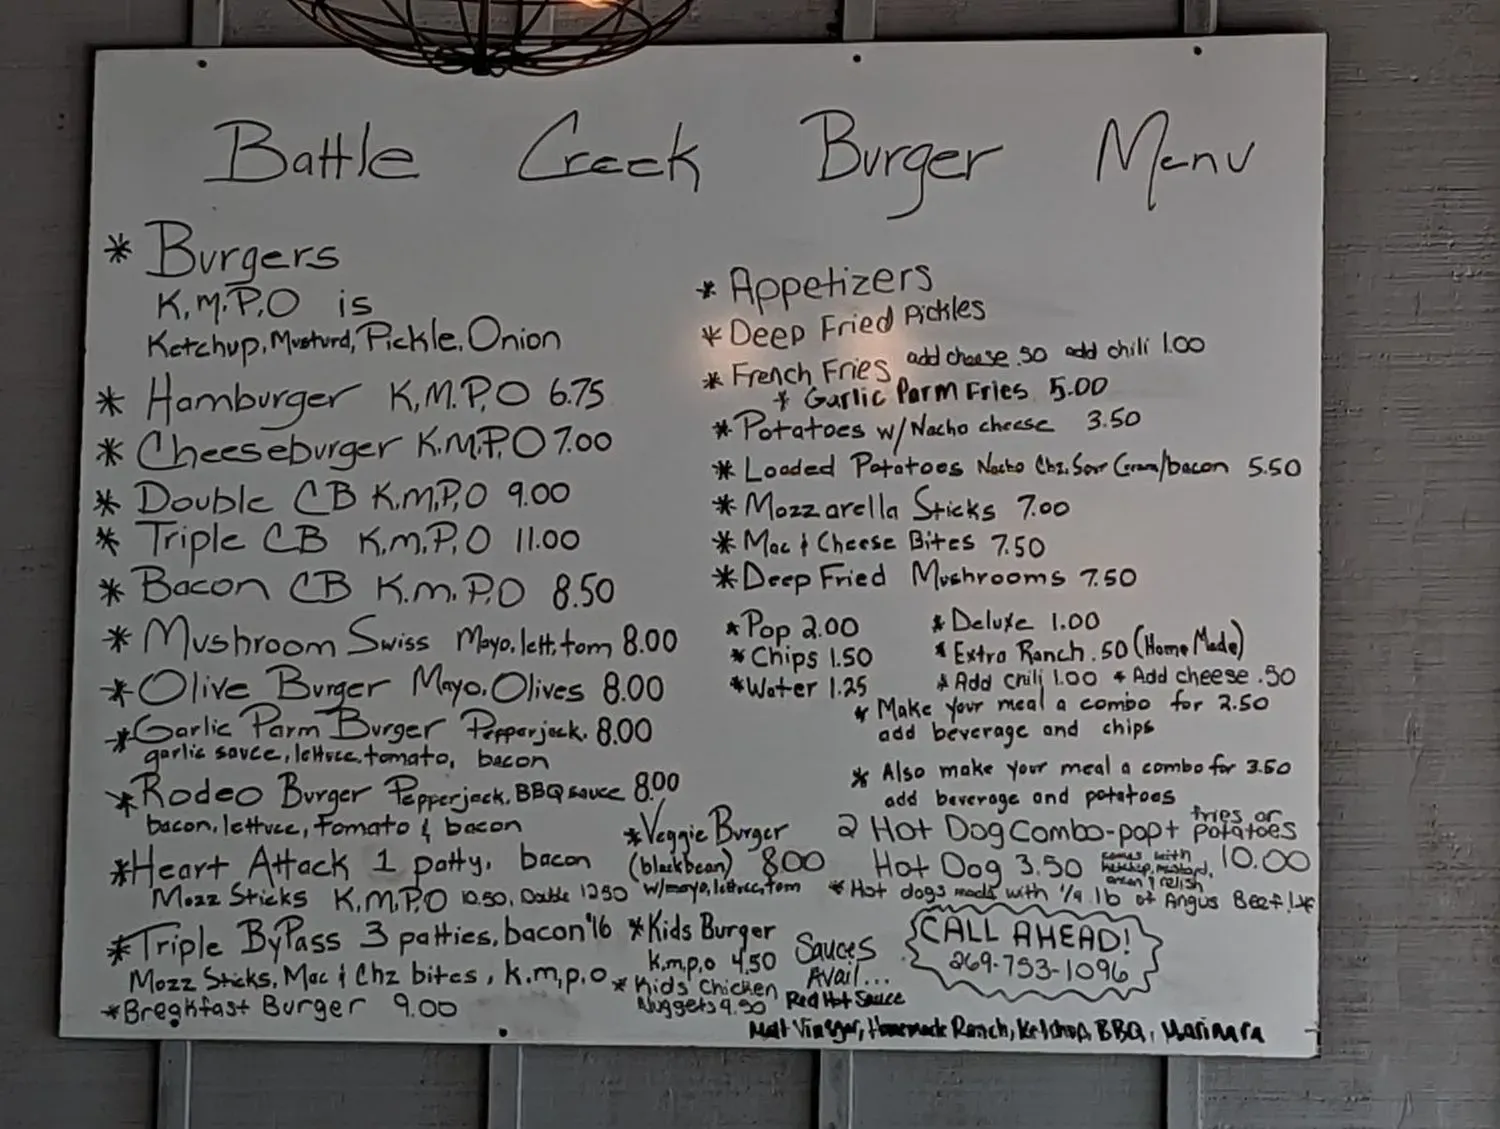 Battle Creek Burger Menu
* Burgers
K.M.P.O is
Ketchup, Musturd, Pickle, Onion
* Hamburger K.M.P.O 6.75
* Cheeseburger K.M.P.O 7.00
* Double CB K.M.P.O 9.00
* Triple CB K.M.P.O 11.00
* Bacon CB K.M.P.O 8.50
* Mushroom Swiss Mayo, lett, tom 8.00
* Olive Burger Mayo, Olives 8.00
* Garlic Parm Burger Pepperjack, 8.00
garlic sauce, lettuce, tomato, bacon
* Rodeo Burger Pepperjack, BBQ sauce 8.00
bacon, lettuce, Tomato & bacon
* Heart Attack 1 patty, bacon
Mozz Sticks K.M.P.O 10.50, Double 12.50
* Triple ByPass 3 patties, bacon $16
Mozz Sticks, Mac & Chz bites, K.m.p.o
* Breakfast Burger 9.00
* Veggie Burger
(blackbean) 8.00
w/mayo, lettuce, tom
* Kids Burger
K.m.p.o 4.50
* Kids Chicken
Nuggets 4.50
* Appetizers
* Deep Fried Pickles
* French Fries add cheese .50 add chili 1.00
* Garlic Parm Fries 5.00
* Potatoes w/Nacho cheese 3.50
* Loaded Potatoes Nacho Chz, Sour Cream/bacon 5.50
* Mozzarella Sticks 7.00
* Mac & Cheese Bites 7.50
* Deep Fried Mushrooms 7.50
* Pop 2.00
* Chips 1.50
* Water 1.25
* Deluxe 1.00
* Extra Ranch .50 (Home Made)
* Add Chili 1.00 + Add cheese .50
* Make your meal a combo for 2.50
add beverage and chips
* Also make your meal a combo for 3.50
add beverage and potatoes
2 Hot Dog Combo-pop + fries or potatoes
Hot Dog 3.50 comes with ketchup, mustard, onion & relish 10.00
* Hot dogs made with 1/4 lb of Angus Beef!
Sauces
Avail...
Red Hot Sauce
Malt Vinegar, Homemade Ranch, Ketchup, BBQ, Marinara
CALL AHEAD!
269-753-1096